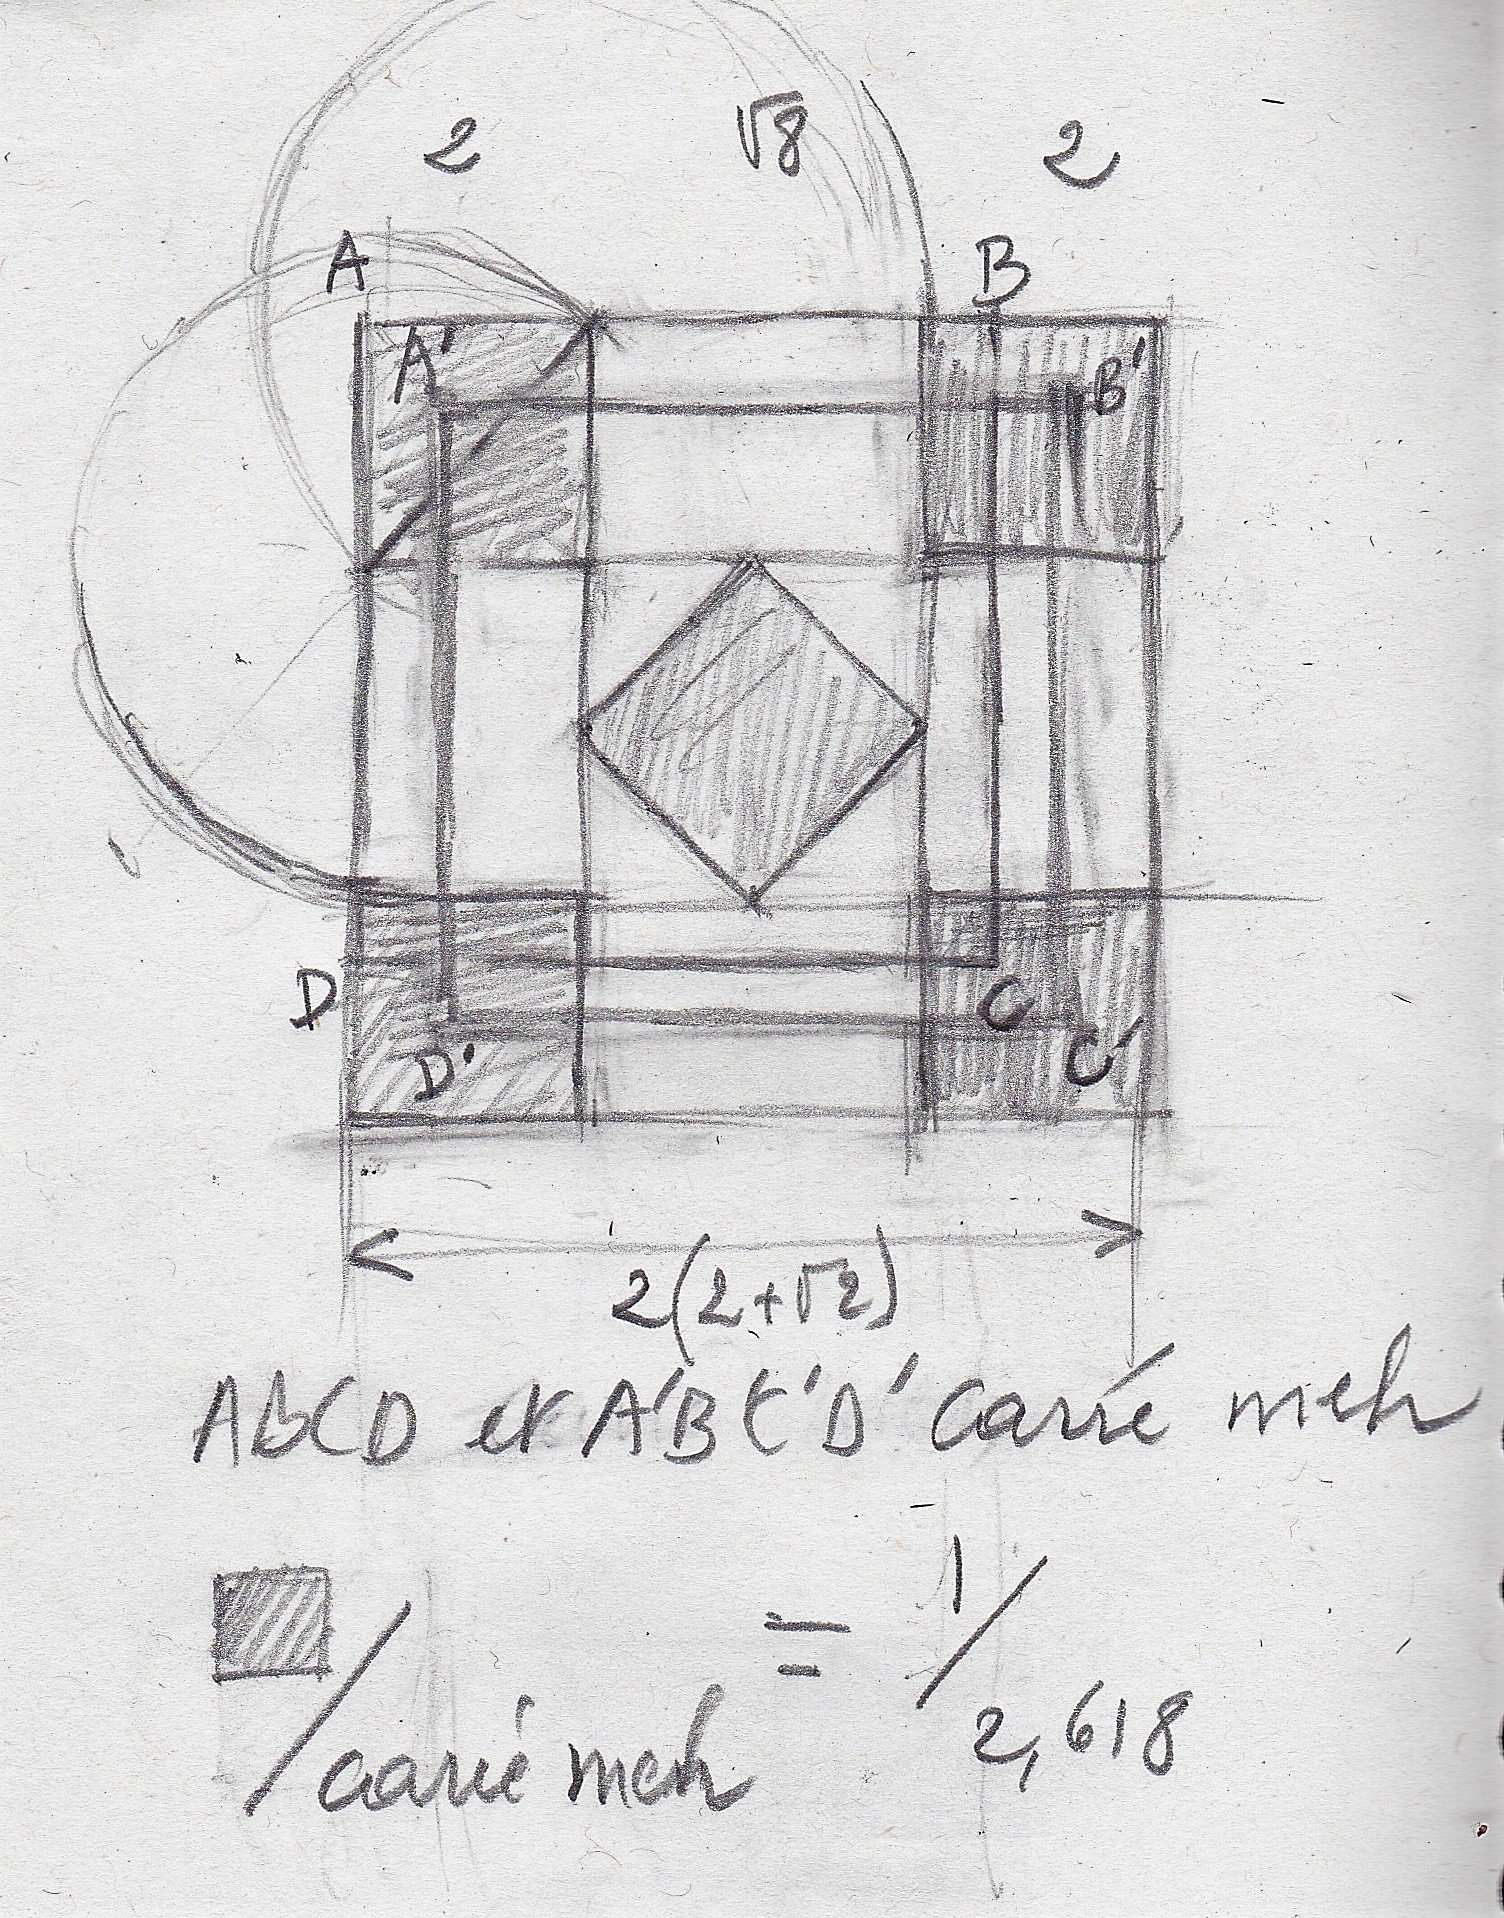 2 √8 2
A B
A' B'
D C
D' C'
2(2+√2)
ABCD et A'B'C'D' carré meh
/carré meh = 1/2,618